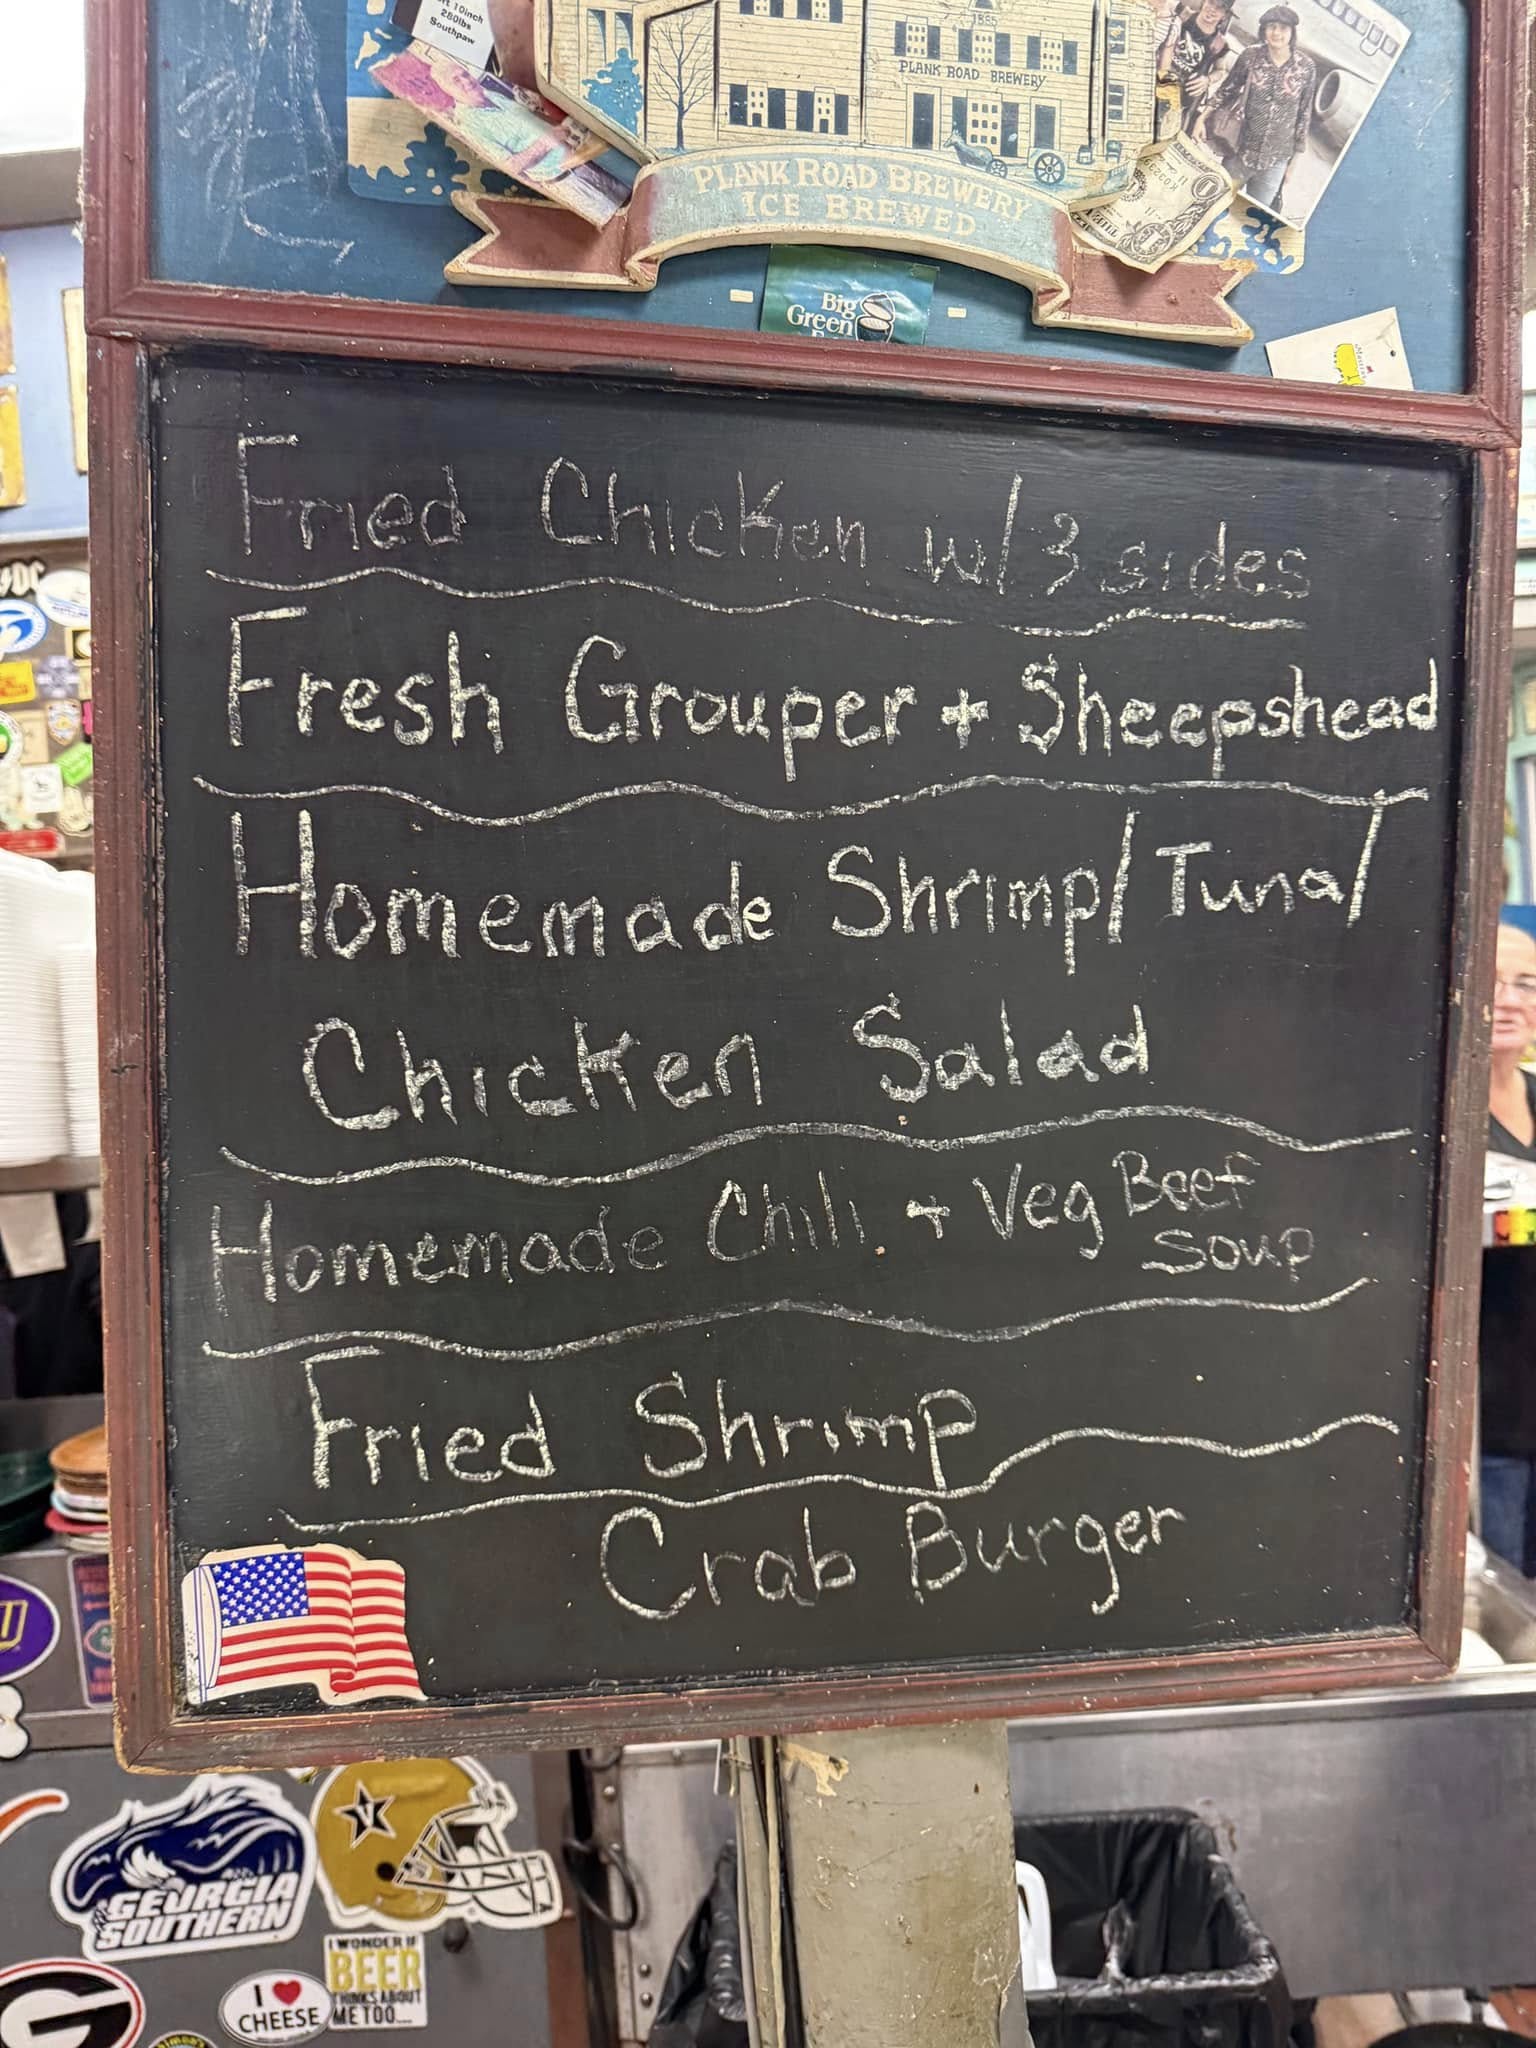 10inch
280lbs
Southpaw
1855
PLANK ROAD BREWERY
PLANK ROAD BREWERY
ICE BREWED
Big
Green
Fried Chicken w/ 3 sides
Fresh Grouper + Sheepshead
Homemade Shrimp/Tuna/
Chicken Salad
Homemade Chili + Veg Beef
Soup
Fried Shrimp
Crab Burger
GEORGIA
SOUTHERN
V
I WONDER IF
BEER
THINKS ABOUT
ME TOO...
I
CHEESE
G